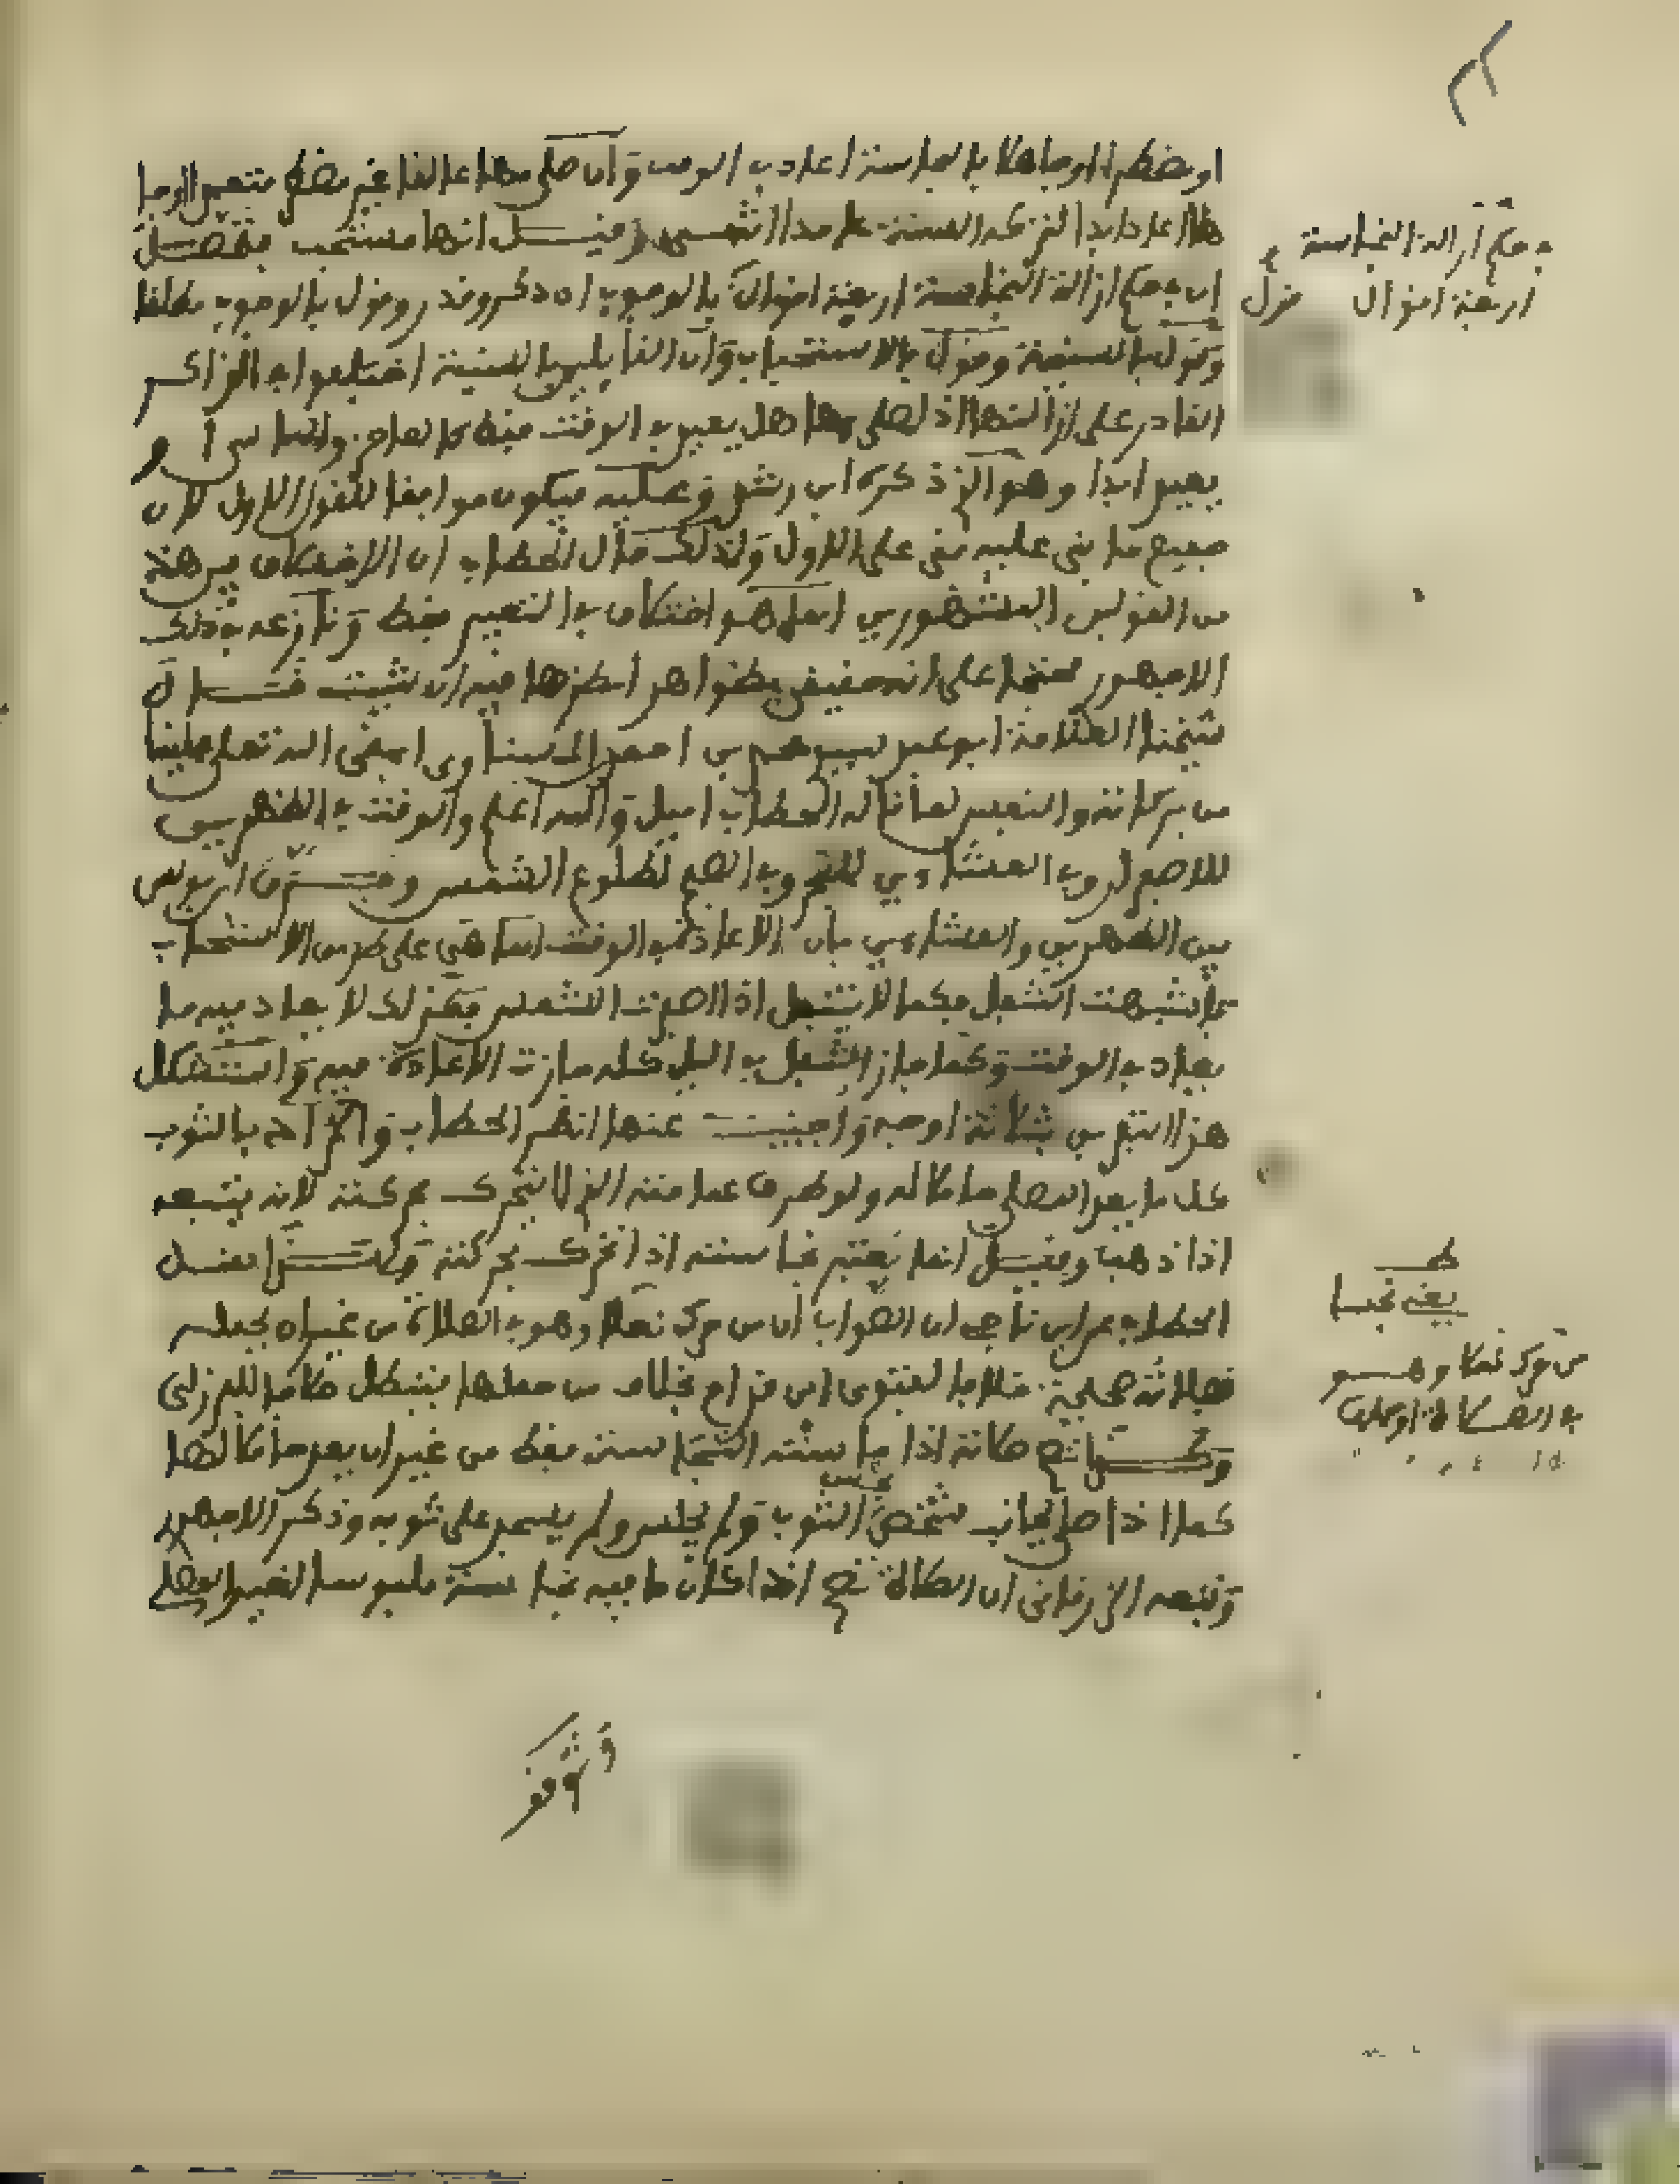 او مضطرا او جاهلا بالنجاسة اعاد في الوقت وان صلى بها عالما غير مضطر متعمدا او جا
هلا اعاد ابدا لتركه السنة عامدا انتهى وقيل انها مستحب فتحصل
ان في حكم ازالة النجاسة اربعة اقوال بالوجوب ان ذكر وقدر وقول بالوجوب مطلقا
وقول بالسنية وقول بالاستحباب وان القايلين بالسنية اختلفوا في الذاكر
القادر على ازالتها اذا صلى بها هل يعيد في الوقت فقط كالعاجز والناسي او
يعيد ابدا وهو الذي ذكره ابن رشد وعليه فيكون موافقا للقول الاول لان
جميع ما بنى عليه بنى على الاول ولذلك قال الحطاب ان الاختلاف في هذه
من القولين المشهورين انما هو اختلاف في التعبير فقط ونازعه في ذلك
الاجهوري محتجا على انه حقيقي بظواهر انظرها فيه ان شيت قال
شيخنا العلامة ابو عبد محمد بن احمد المسناوي ابقى الله تعلى علينا
من بركاته والنفس لما قاله الحطاب اميل والله اعلم والوقت في الظهرين
للاصفرار وفي العشاءين للفجر وفي الصبح لطلوع الشمس وفرق ابن يونس
بين الظهرين والعشاءين بان الاعادة في الوقت انما هي على طريق الاستحباب
فاشبهت التنفل فكما لا يتنفل اذا اصفرت الشمس فكذلك لا يعاد فيه ما
يعاد في الوقت وكما جاز التنفل في الليل كله جازت الاعادة فيه واستشكل
هذا التفريق بثلاثة اوجه واجيبت عنها انظر الحطاب والمراد بالثوب
كل ما يعد المصلي حاملا له ولو طرف عمامته الذي لا يتحرك بحركته لانه يتبعه
اذا ذهب وقيل انما يعتبر نجاسته اذا تحرك بحركته ونقل
الحطاب عن ابن ناجي ان الصواب ان من حرك نعلا وهو في الصلاة من غير ان يجعلـ
فصلاته صحيحة قال وبالفتوى ابن قداح بخلاف من حملها فتبطل خلافا للبرزلي
وتصح صلاته اذا ما ستـه النجاسة فقط من غير ان يعد حاملا لها
كما اذا صلى بجانب شخص نجس الثوب ولم يجلس ولم يسجد على ثوبه وذكر الاجهوري
وتبعه الزرقاني ان الصلاة تصح اذا كان ما فيه نجاسة ملبوسا لغير المصلي
وثوقو
في حكم ازالة النجاسة
اربعة اقوال
يعني نجسا
من حرك نعلا وهو
في الصلاة